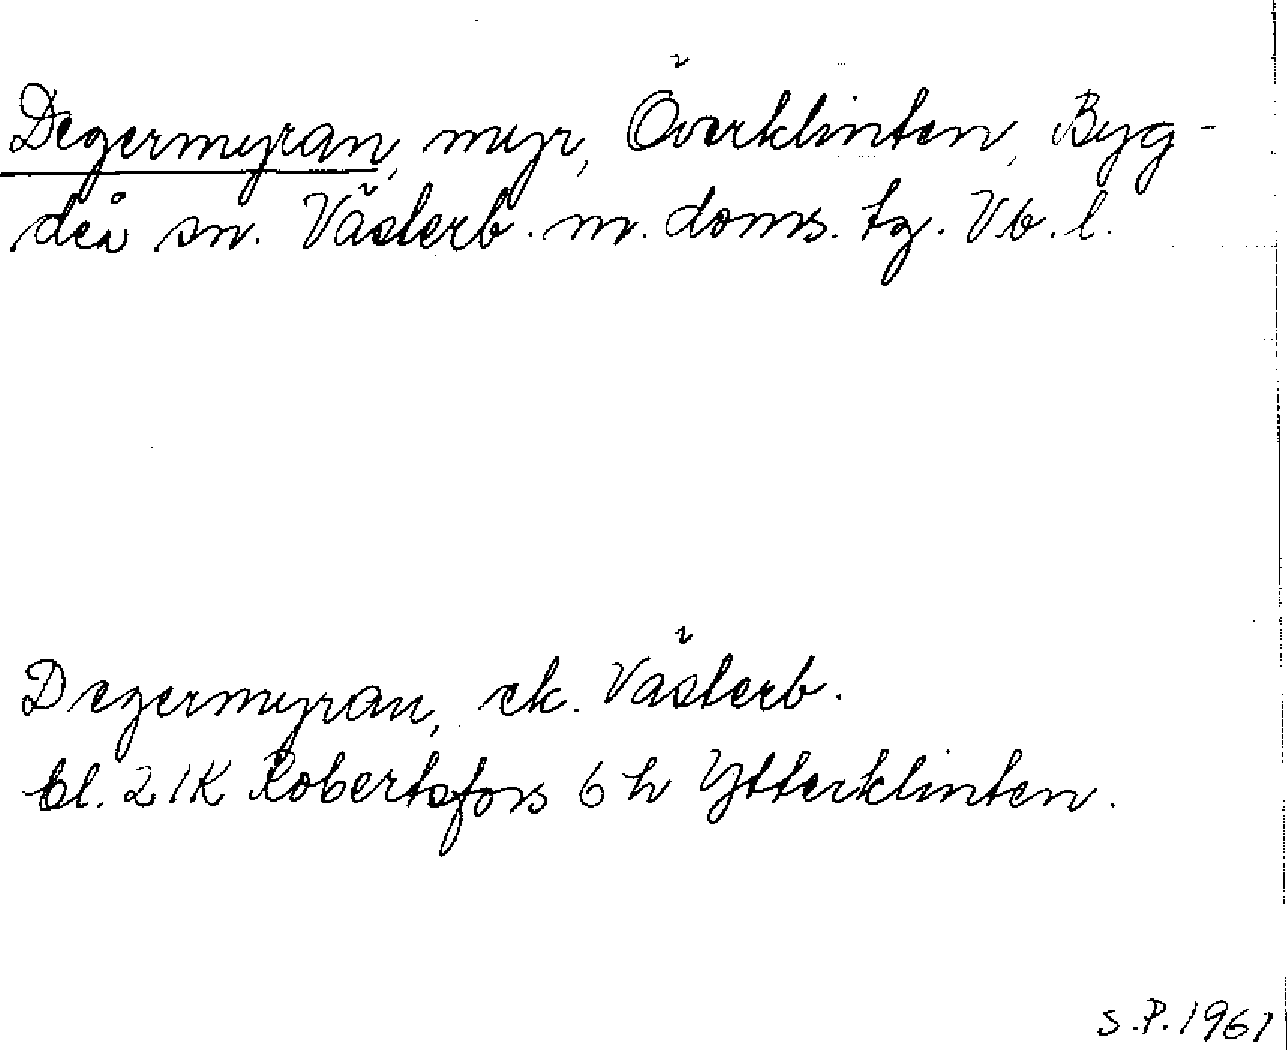 Degermyran, myr, Överklinten, Byg-
deå sn. Västerb. m. doms. tg. Vb. l.
Degermyran, ek. Västerb.
bl. 21K Robertsfors 6 h Ytterklinten.
S.P. 1961